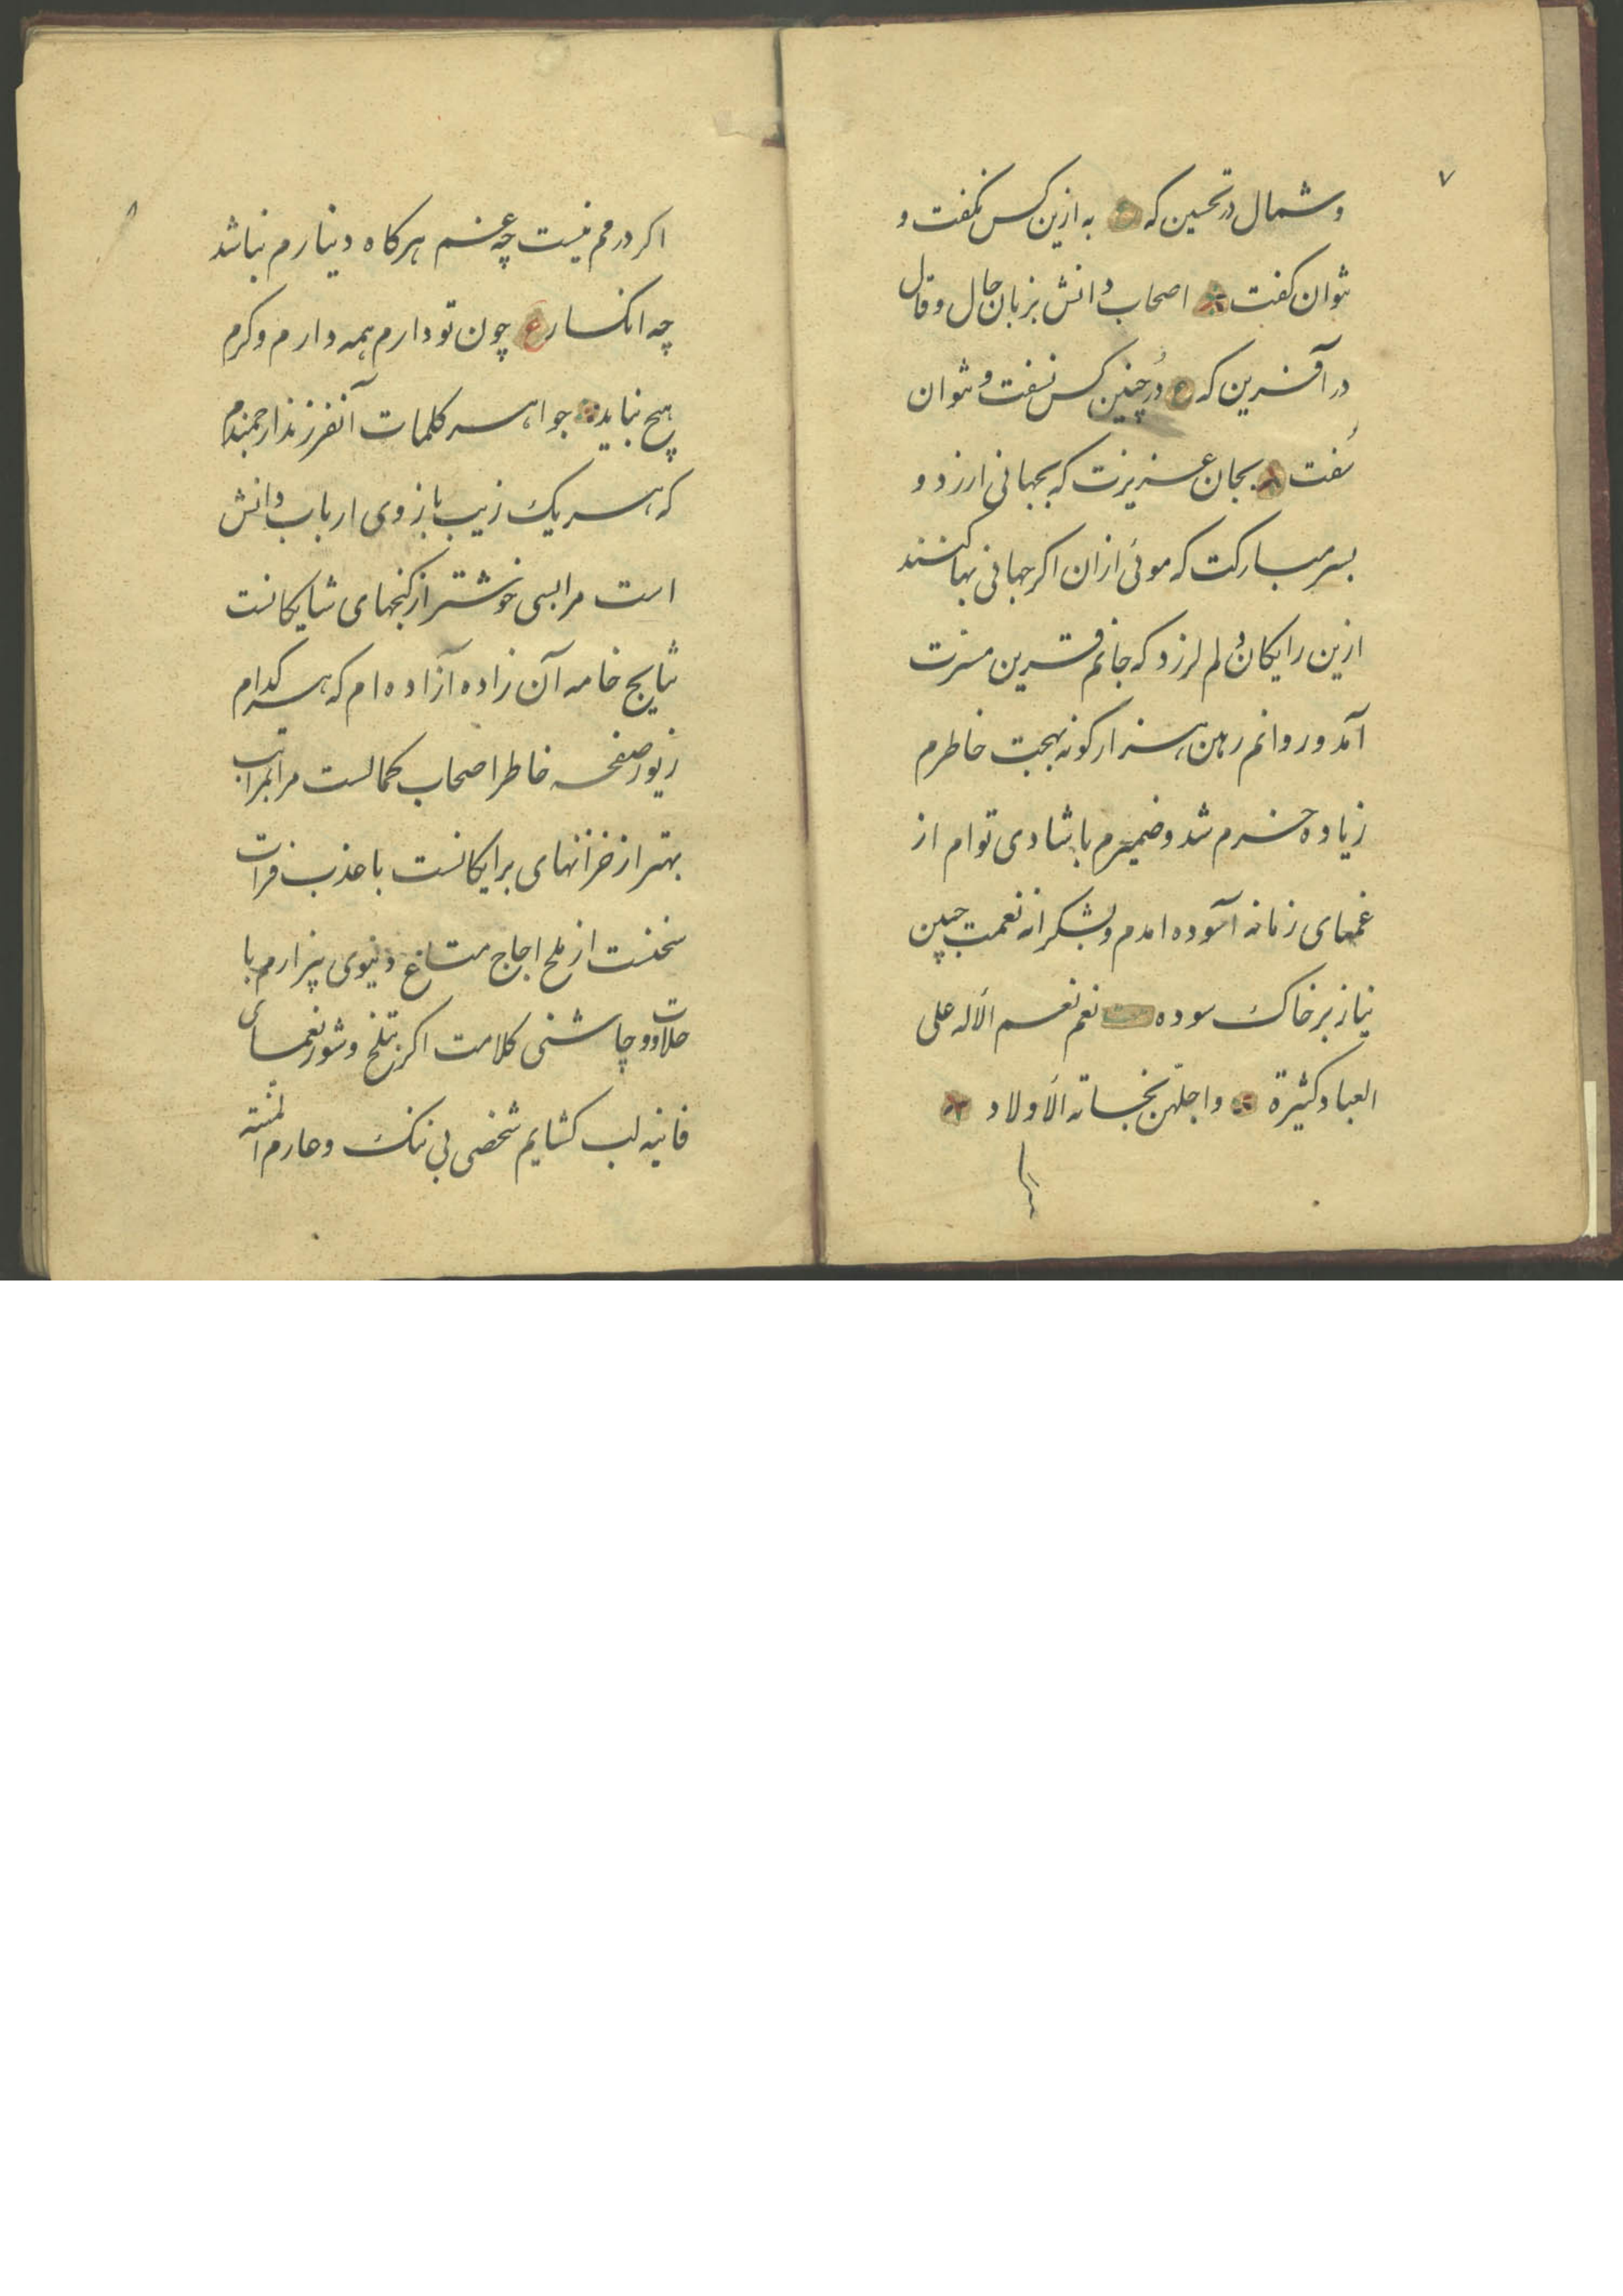 ۷
و شمال در تحسین که ع به ازین کس نکفت و
نتوان کفت اصحاب دانش بزبان حال و قال
در آفرین که ع دُر چنین کس نسفت و نتوان
سُفت بجان عزیزت که بجهانی ارزد و
بسر مبارکت که موئی ازان اکر جهانی بها کنند
ازین رایکان دلم لرزد که جانم قرین مسرت
آمد و روانم رهین هزار کونه بهجت خاطرم
زیاده خرم شد و ضمیرم با شادی توام از
غمهای زمانه آسوده امدم و بشکرانه نعمت جبین
نیاز بر خاک سوده بیت نعم نعم الاله علی
العباد کثیرة واجلّهن نجابة الأولاد
۸
اکر درهم نیست چه غم هرکاه دینارم نباشد
چه انکسار ع چون تو دارم همه دارم دکرم
هیچ نباید جواهر کلمات آنفرزند ارجمندم
که هر یک زیب بازوی ارباب دانش
است مرا بسی خوشتر از کنجهای شایکانست
نتایج خامه آن زاده آزاده ام که هر کدام
زیور صفحه خاطر اصحاب کمالست مرا بمراتب
بهتر از خزانهای برایکانست با عذب فرات
سخنت از ملح اجاج متاع دنیوی بیزارم با
حلاوت و چاشنی کلامت اکر بتلخ و شور نعمای
فانیه لب کشایم شخصی بی ننک و عارم المنته